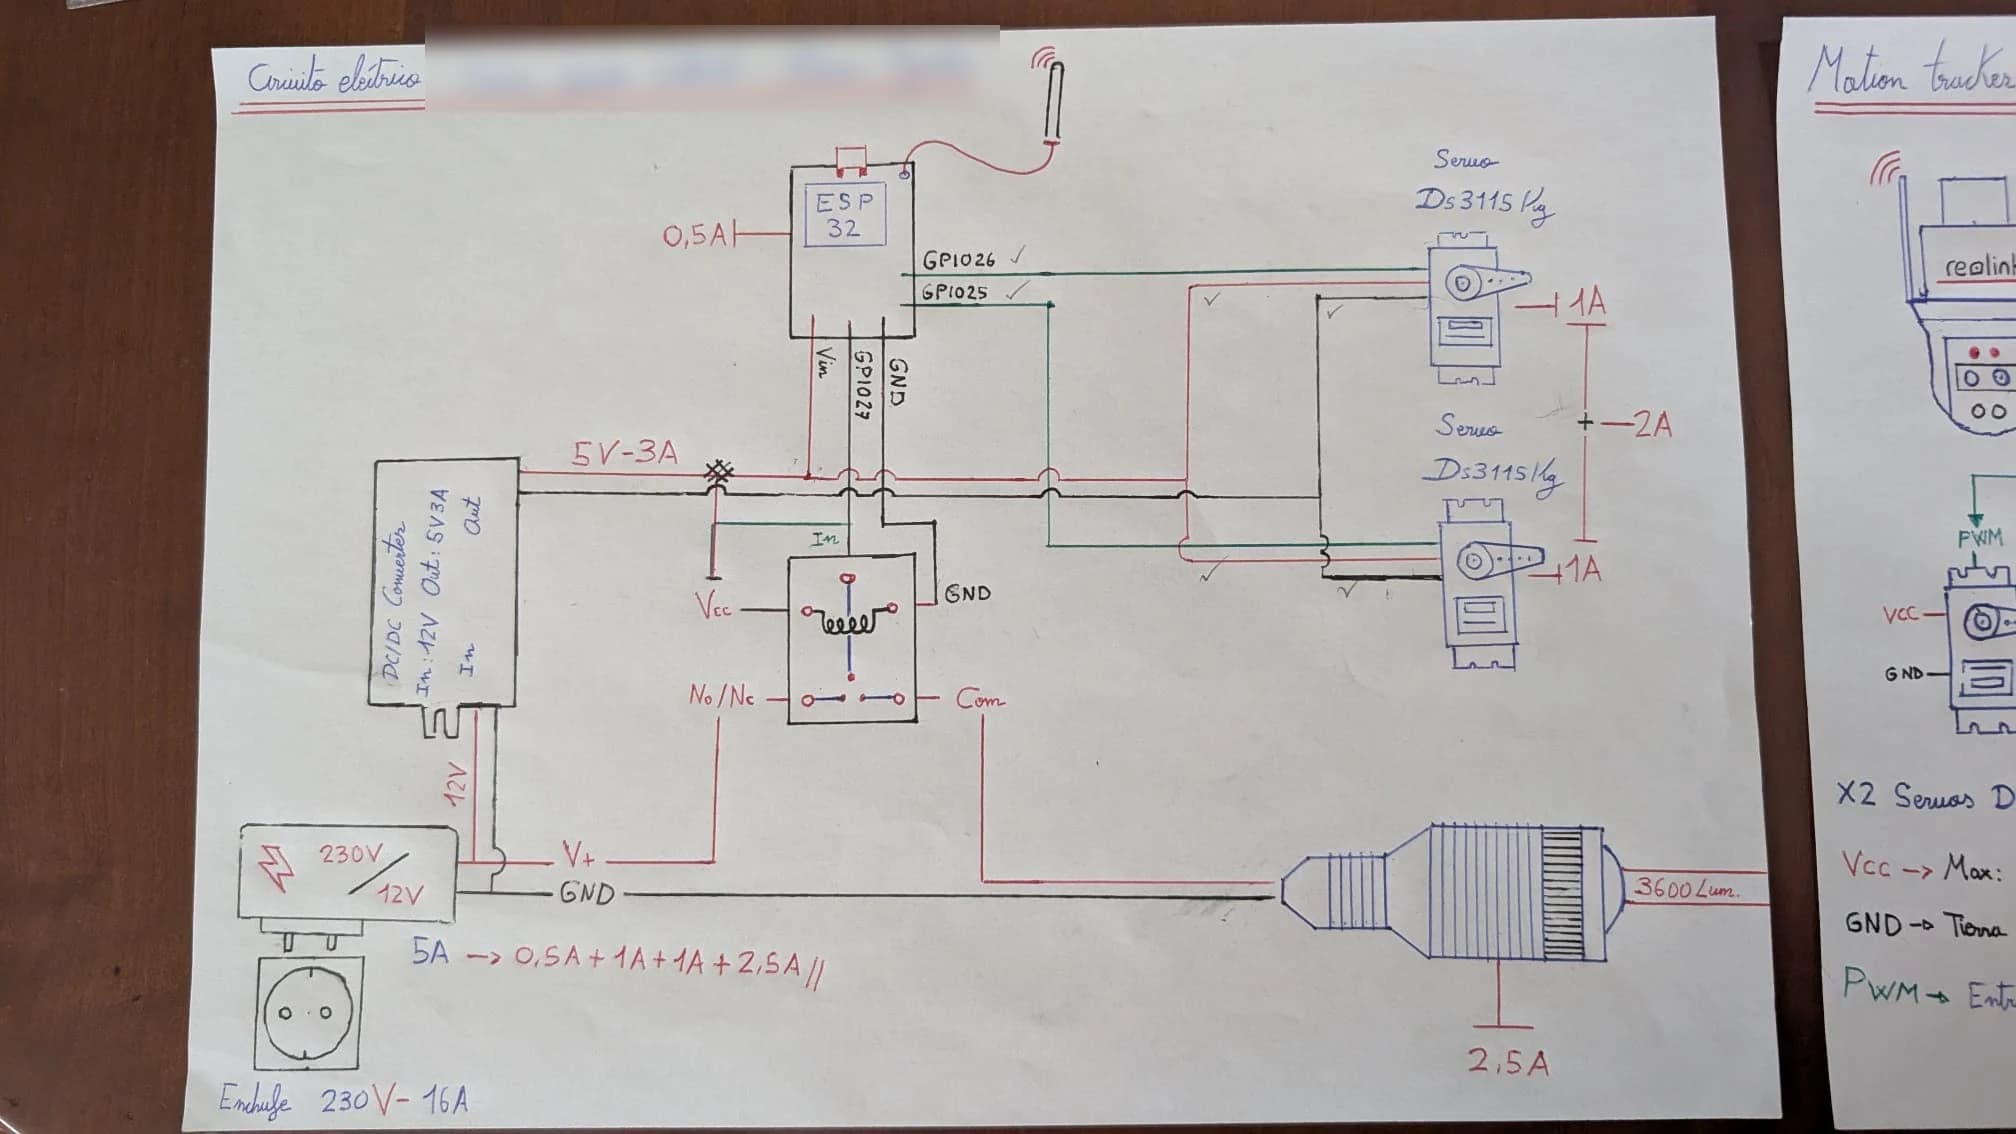 Circuito eléctrico
ESP
32
0,5A
GPIO26
GPIO25
Vin
GPIO27
GND
Servo
Ds3115Kg
1A
+ 2A
Servo
Ds3115Kg
1A
5V-3A
DC/DC Converter
In: 12V Out: 5V3A
In Out
In
Vcc
GND
No/Nc
Com
12V
230V/12V
V+
GND
5A -> 0,5A + 1A + 1A + 2,5A//
3600Lum.
2,5A
Enchufe 230V- 16A
Motion tracker
reolink
PWM
VCC
GND
X2 Servos D
Vcc -> Max:
GND -> Tierra
PWM -> Entr